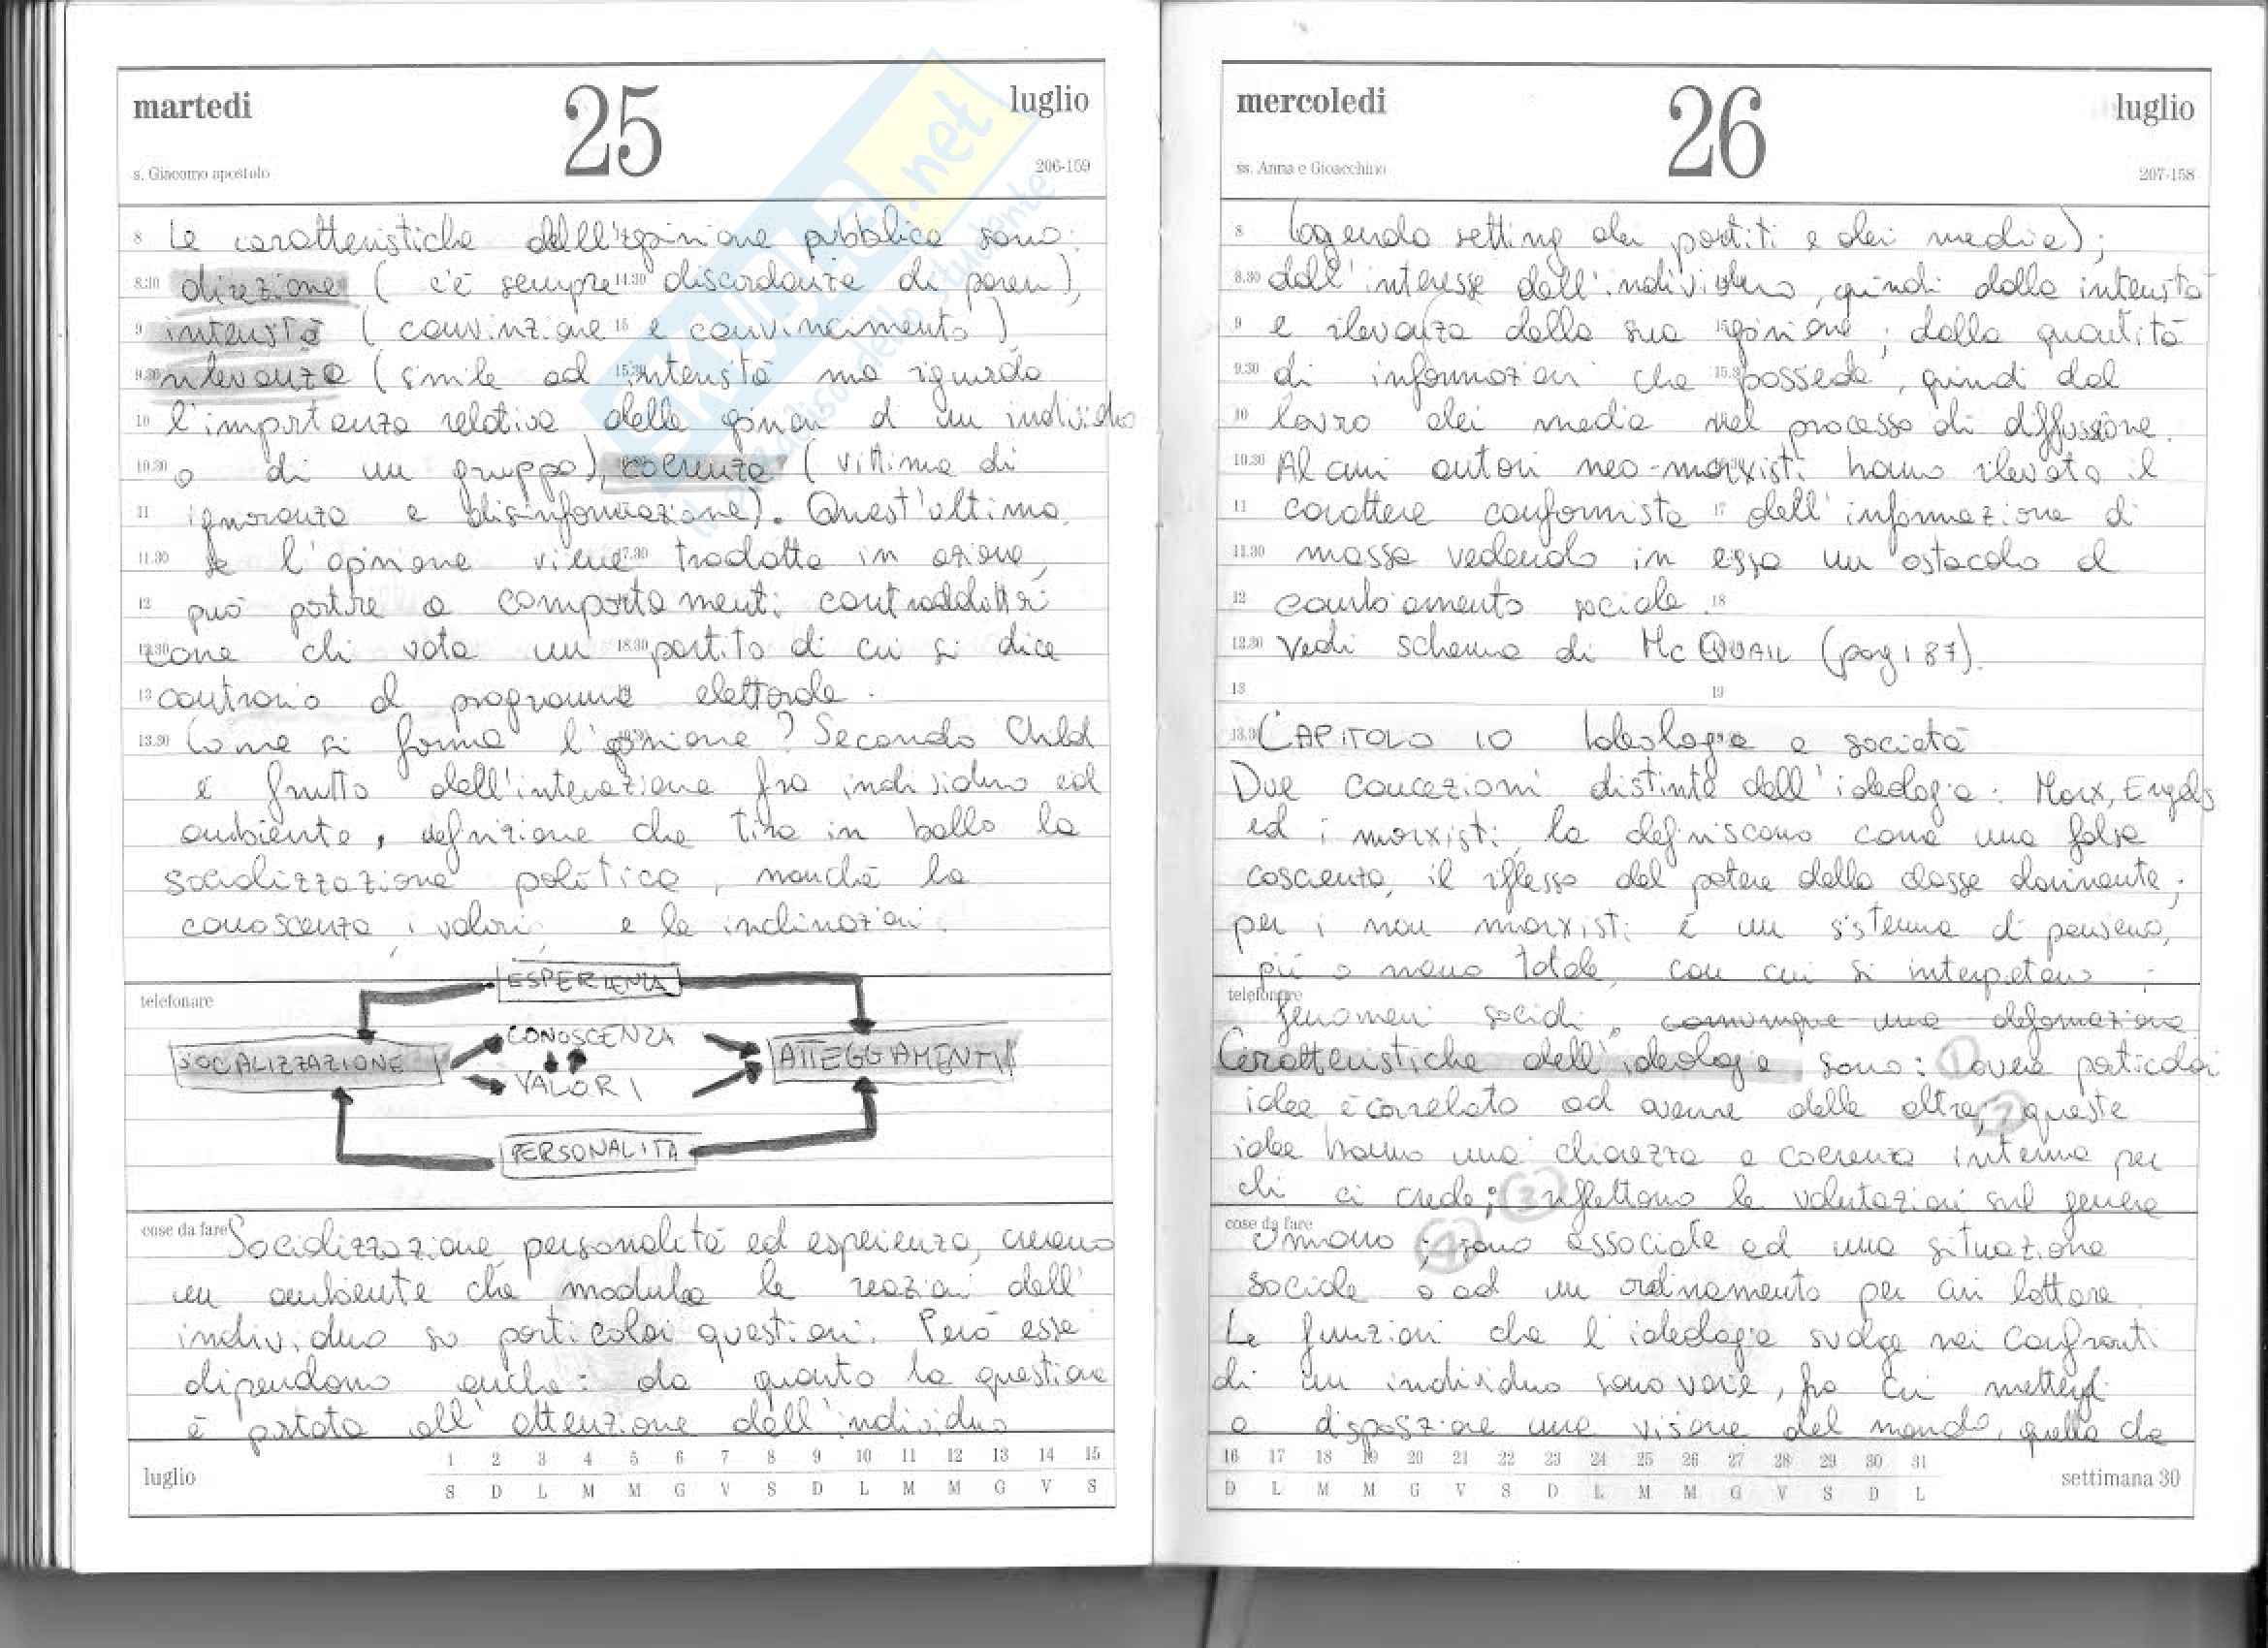 martedi 25 luglio
s. Giacomo apostolo 206-159
8 Le caratteristiche dell'opinione pubblica sono:
8.30 direzione ( c'è sempre 14.30 discordanza di pareri),
9 intensità ( convinzione 15 e convincimento )
9.30 rilevanza ( simile ad 15.30 intensità ma riguarda
10 l'importanza relativa della opinion di un individuo
10.30 o di un gruppo), coerenza ( vittima di
11 ignoranza e disinformazione). Quest'ultima,
11.30 se l'opinione viene 17.30 tradotta in azione,
12 può portare a comportamenti contraddittori
12.30 come chi vota un 18.30 partito di cui si dice
13 contrario al programma 19 elettorale.
13.30 Come si forma l'opinione? Secondo Child
è frutto dell'interazione fra individuo ed
ambiente, definizione che tira in ballo la
socializzazione politica, nonché la
conoscenza, i valori, e le inclinazioni.
telefonare
ESPERIENZA
SOCALIZZAZIONE
CONOSCENZA
VALORI
ATTEGGAMENTI
PERSONALITÀ
cose da fare Socializzazione, personalità ed esperienza, creano
un ambiente che modula le reazioni dell'
individuo su particolari questioni. Però esse
dipendono anche: da quanto la questione
è portata all'attenzione dell'individuo
luglio 1 2 3 4 5 6 7 8 9 10 11 12 13 14 15
S D L M M G V S D L M M G V S
SKUOLA.net
il paradiso dello studente
mercoledi 26 luglio
ss. Anna e Gioacchino 207-158
8 (agenda setting dei partiti e dei media);
8.30 dall'interesse dell'individuo, quindi dalla intensità
9 e rilevanza della sua 15 opinione; dalla quantità
9.30 di informazioni che 15.30 possiede, quindi dal
10 lavoro dei media nel processo di diffusione.
10.30 Alcuni autori neo-marxisti hanno rilevato il
11 carattere conformista 17 dell'informazione di
11.30 massa vedendo in essa un ostacolo al
12 cambiamento sociale. 18
12.30 Vedi schema di McQUAIL (pag 187).
13 19
13.30 CAPITOLO 10 Ideologia e società
Due concezioni distinte dell'ideologia: Marx, Engels
ed i marxisti, la definiscono come una falsa
coscienza, il riflesso del potere della classe dominante;
per i non marxisti è un sistema di pensiero,
più o meno totale, con cui si interpretano i
telefonare
fenomeni sociali, comunque una deformazione
Caratteristiche dell'ideologia sono: 1 avere particolari
idee è correlato ad averne delle altre; 2 queste
idee hanno una chiarezza e coerenza interna per
chi ci crede; 3 riflettono le valutazioni sul genere
cose da fare
umano; 4 sono associate ad una situazione
sociale o ad un ordinamento per cui lottare.
Le funzioni che l'ideologia svolge nei confronti
di un individuo sono varie, fra cui mettergli
a disposizione una visione del mondo, quella che
16 17 18 19 20 21 22 23 24 25 26 27 28 29 30 31
D L M M G V S D L M M G V S D L
settimana 30